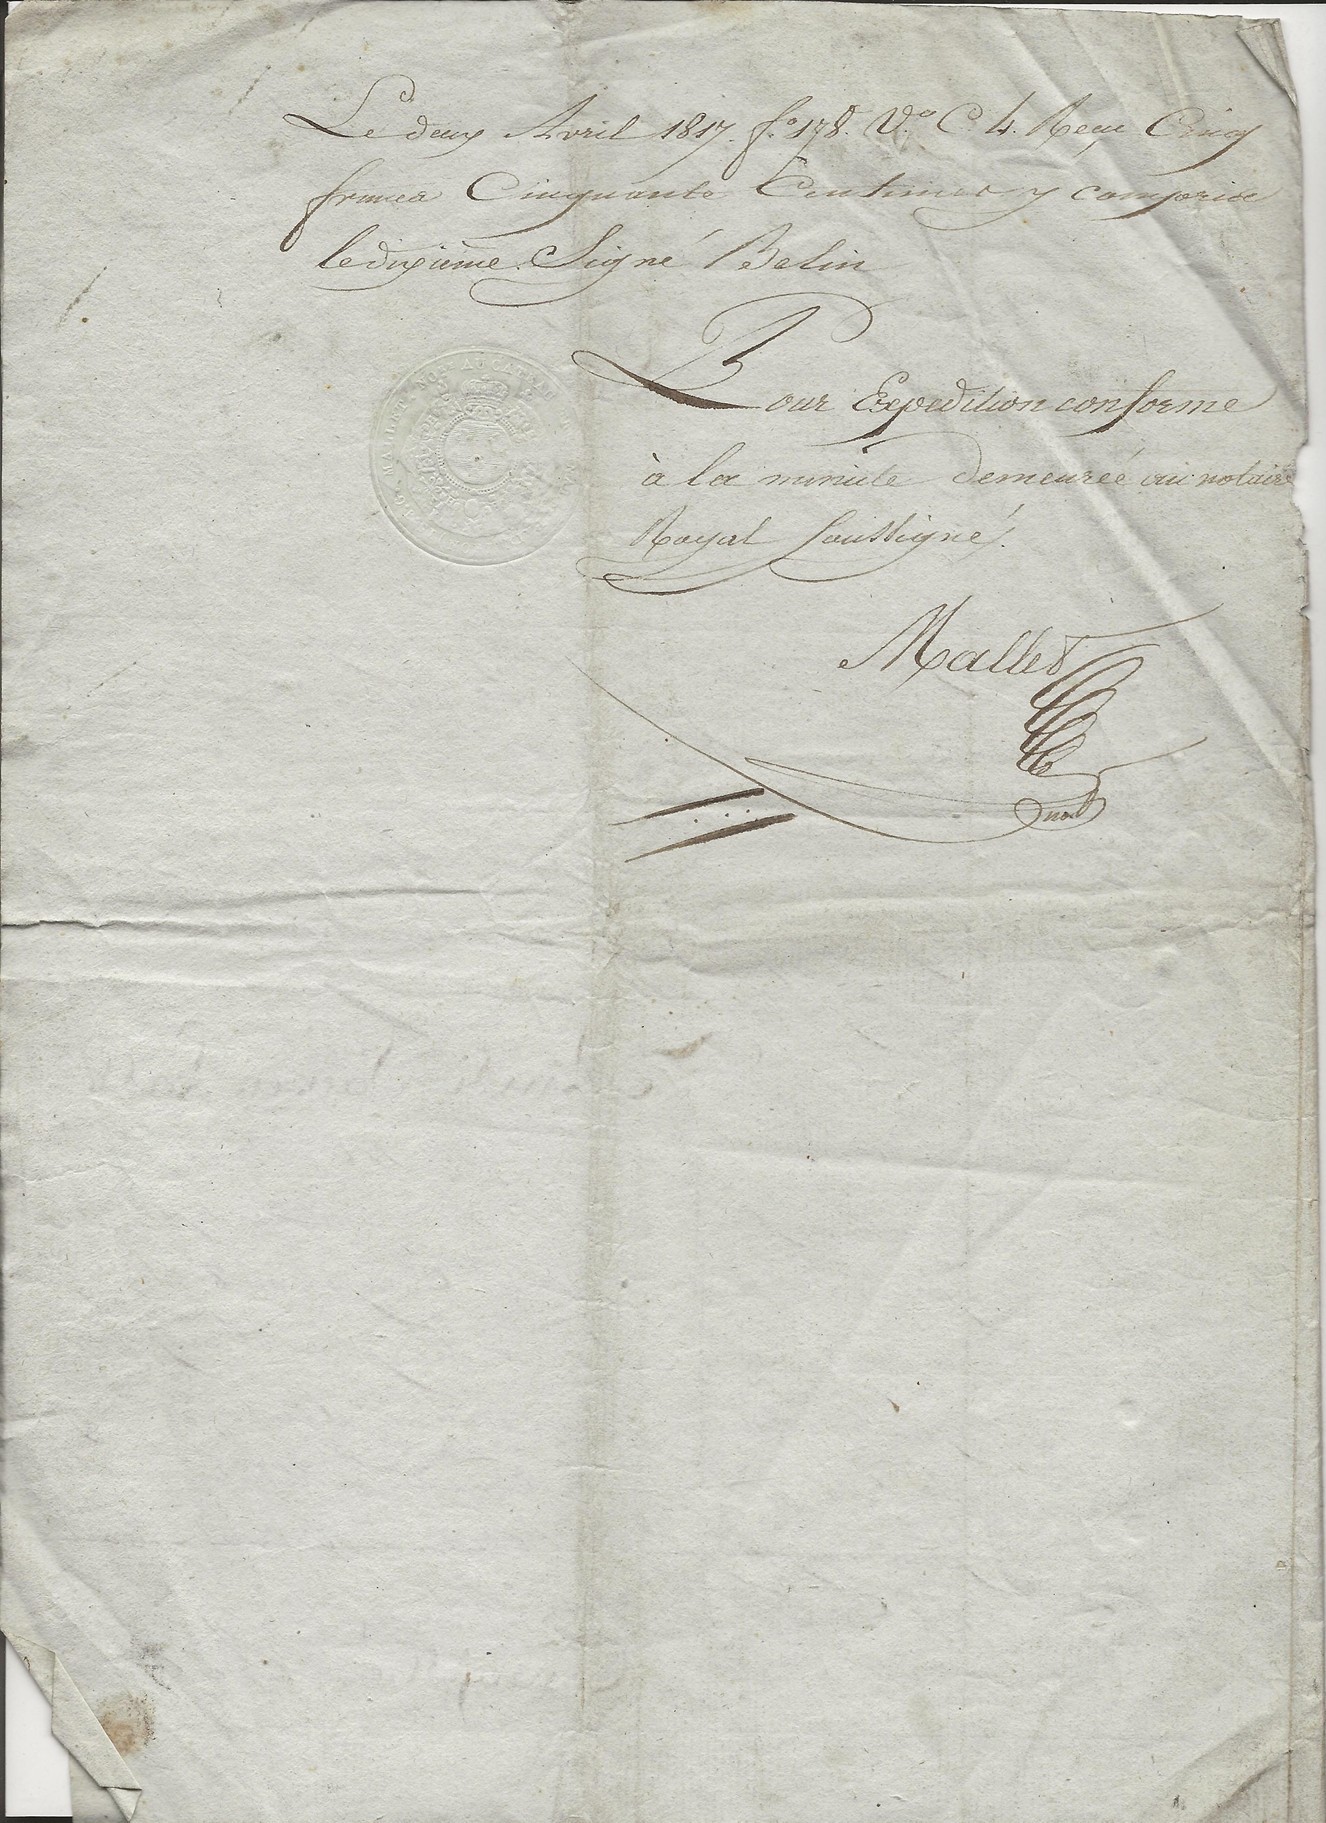 Le deux Avril 1817. f.º 178. V.º C. 4. Reçu Cinq
francs Cinquante Centimes y compris
le dixième. Signé Belin
Pour Expedition conforme
à la minute demeurée au notaire
Royal Soussigné.
Mallet
not